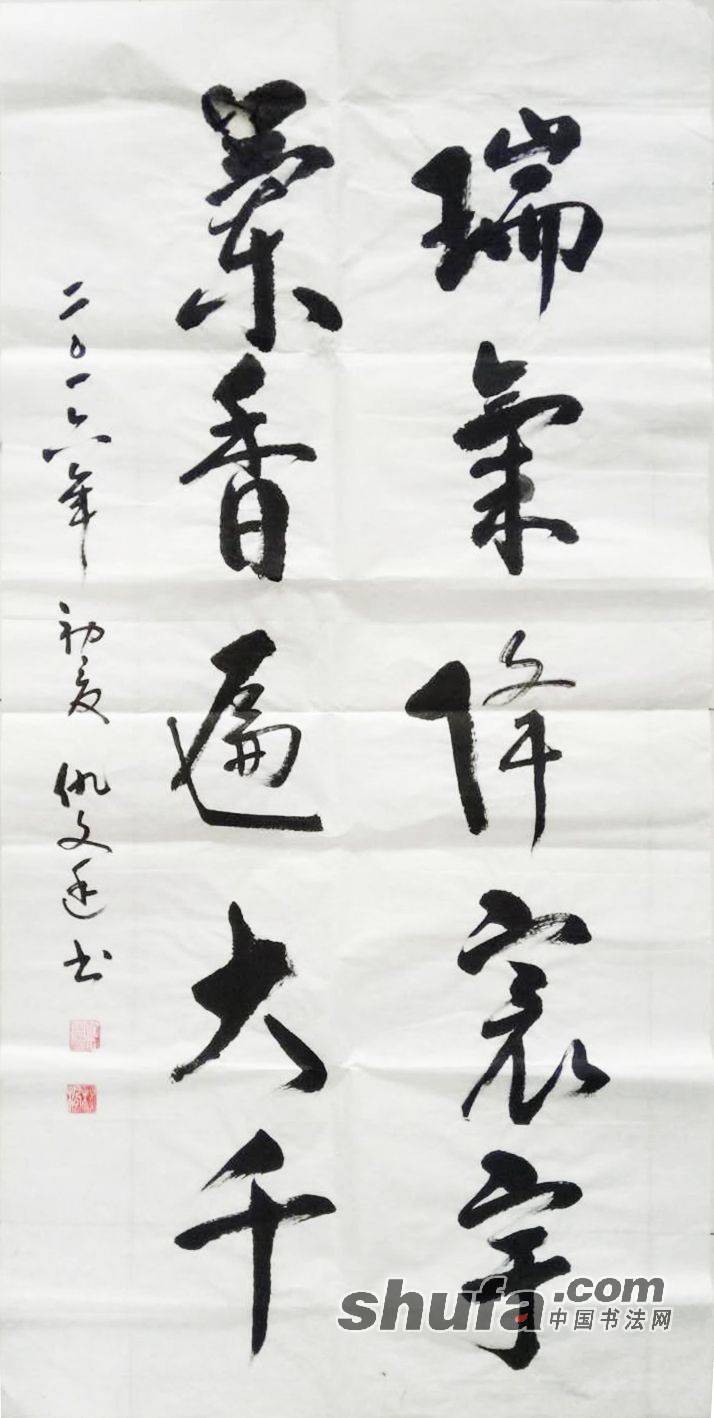 瑞氣降寰宇
香遍大千
二〇一六年初夏 文书
shufa.com
中国书法网